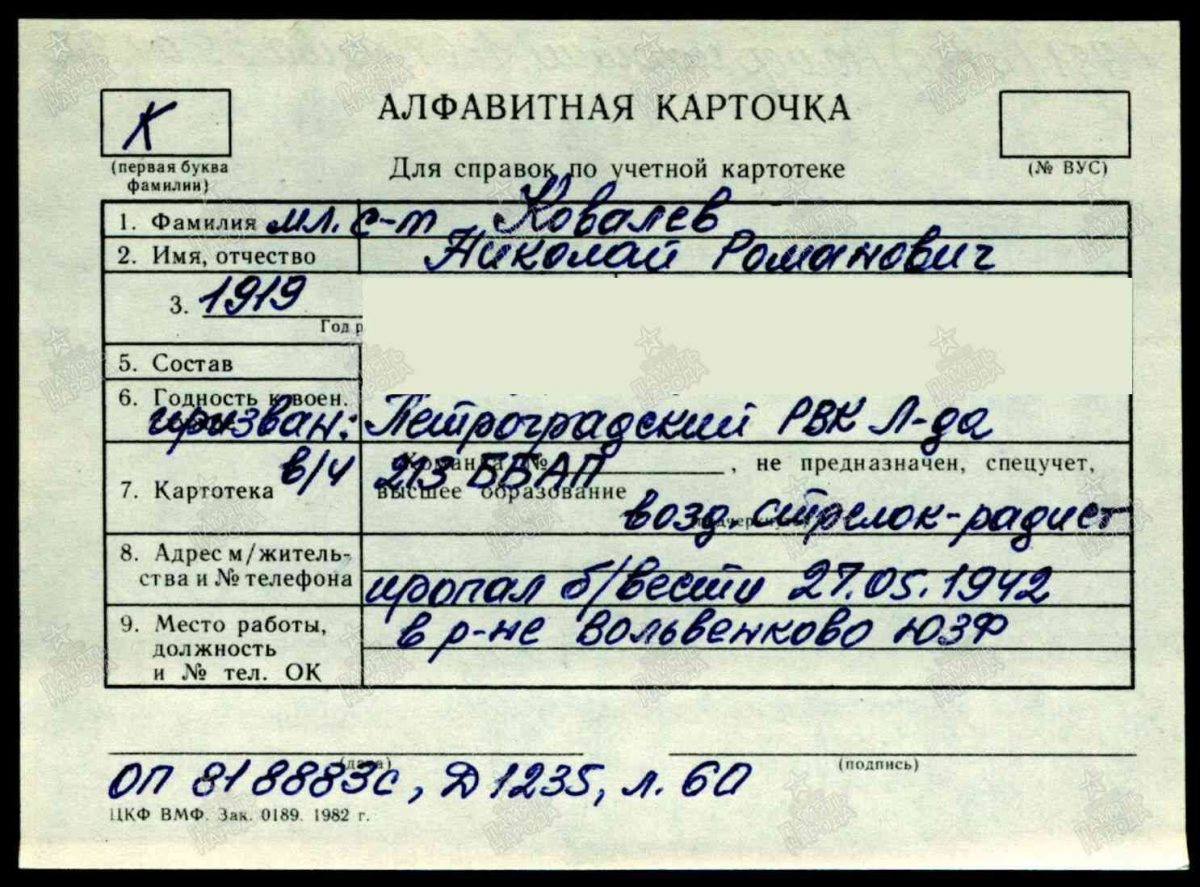 К
АЛФАВИТНАЯ КАРТОЧКА
(первая буква
фамилии)
Для справок по учетной картотеке
(№ ВУС)
1. Фамилия мл. с-т Ковалев
2. Имя, отчество Николай Романович
3. 1919
Год р
5. Состав
6. Годность к воен.
призван: Петроградский РВК Л-да
Команда № , не предназначен, спецучет,
7. Картотека в/ч 213 ББАП
высшее образование
возд. стрелок-радист
8. Адрес м/житель-
ства и № телефона
пропал б/вести 27.05.1942
9. Место работы,
должность
и № тел. ОК
в р-не Вольвенково ЮЗФ
(дата)
(подпись)
ОП 818883с, Д 1235, л. 60
ЦКФ ВМФ. Зак. 0189. 1982 г.
ПАМЯТЬ НАРОДА